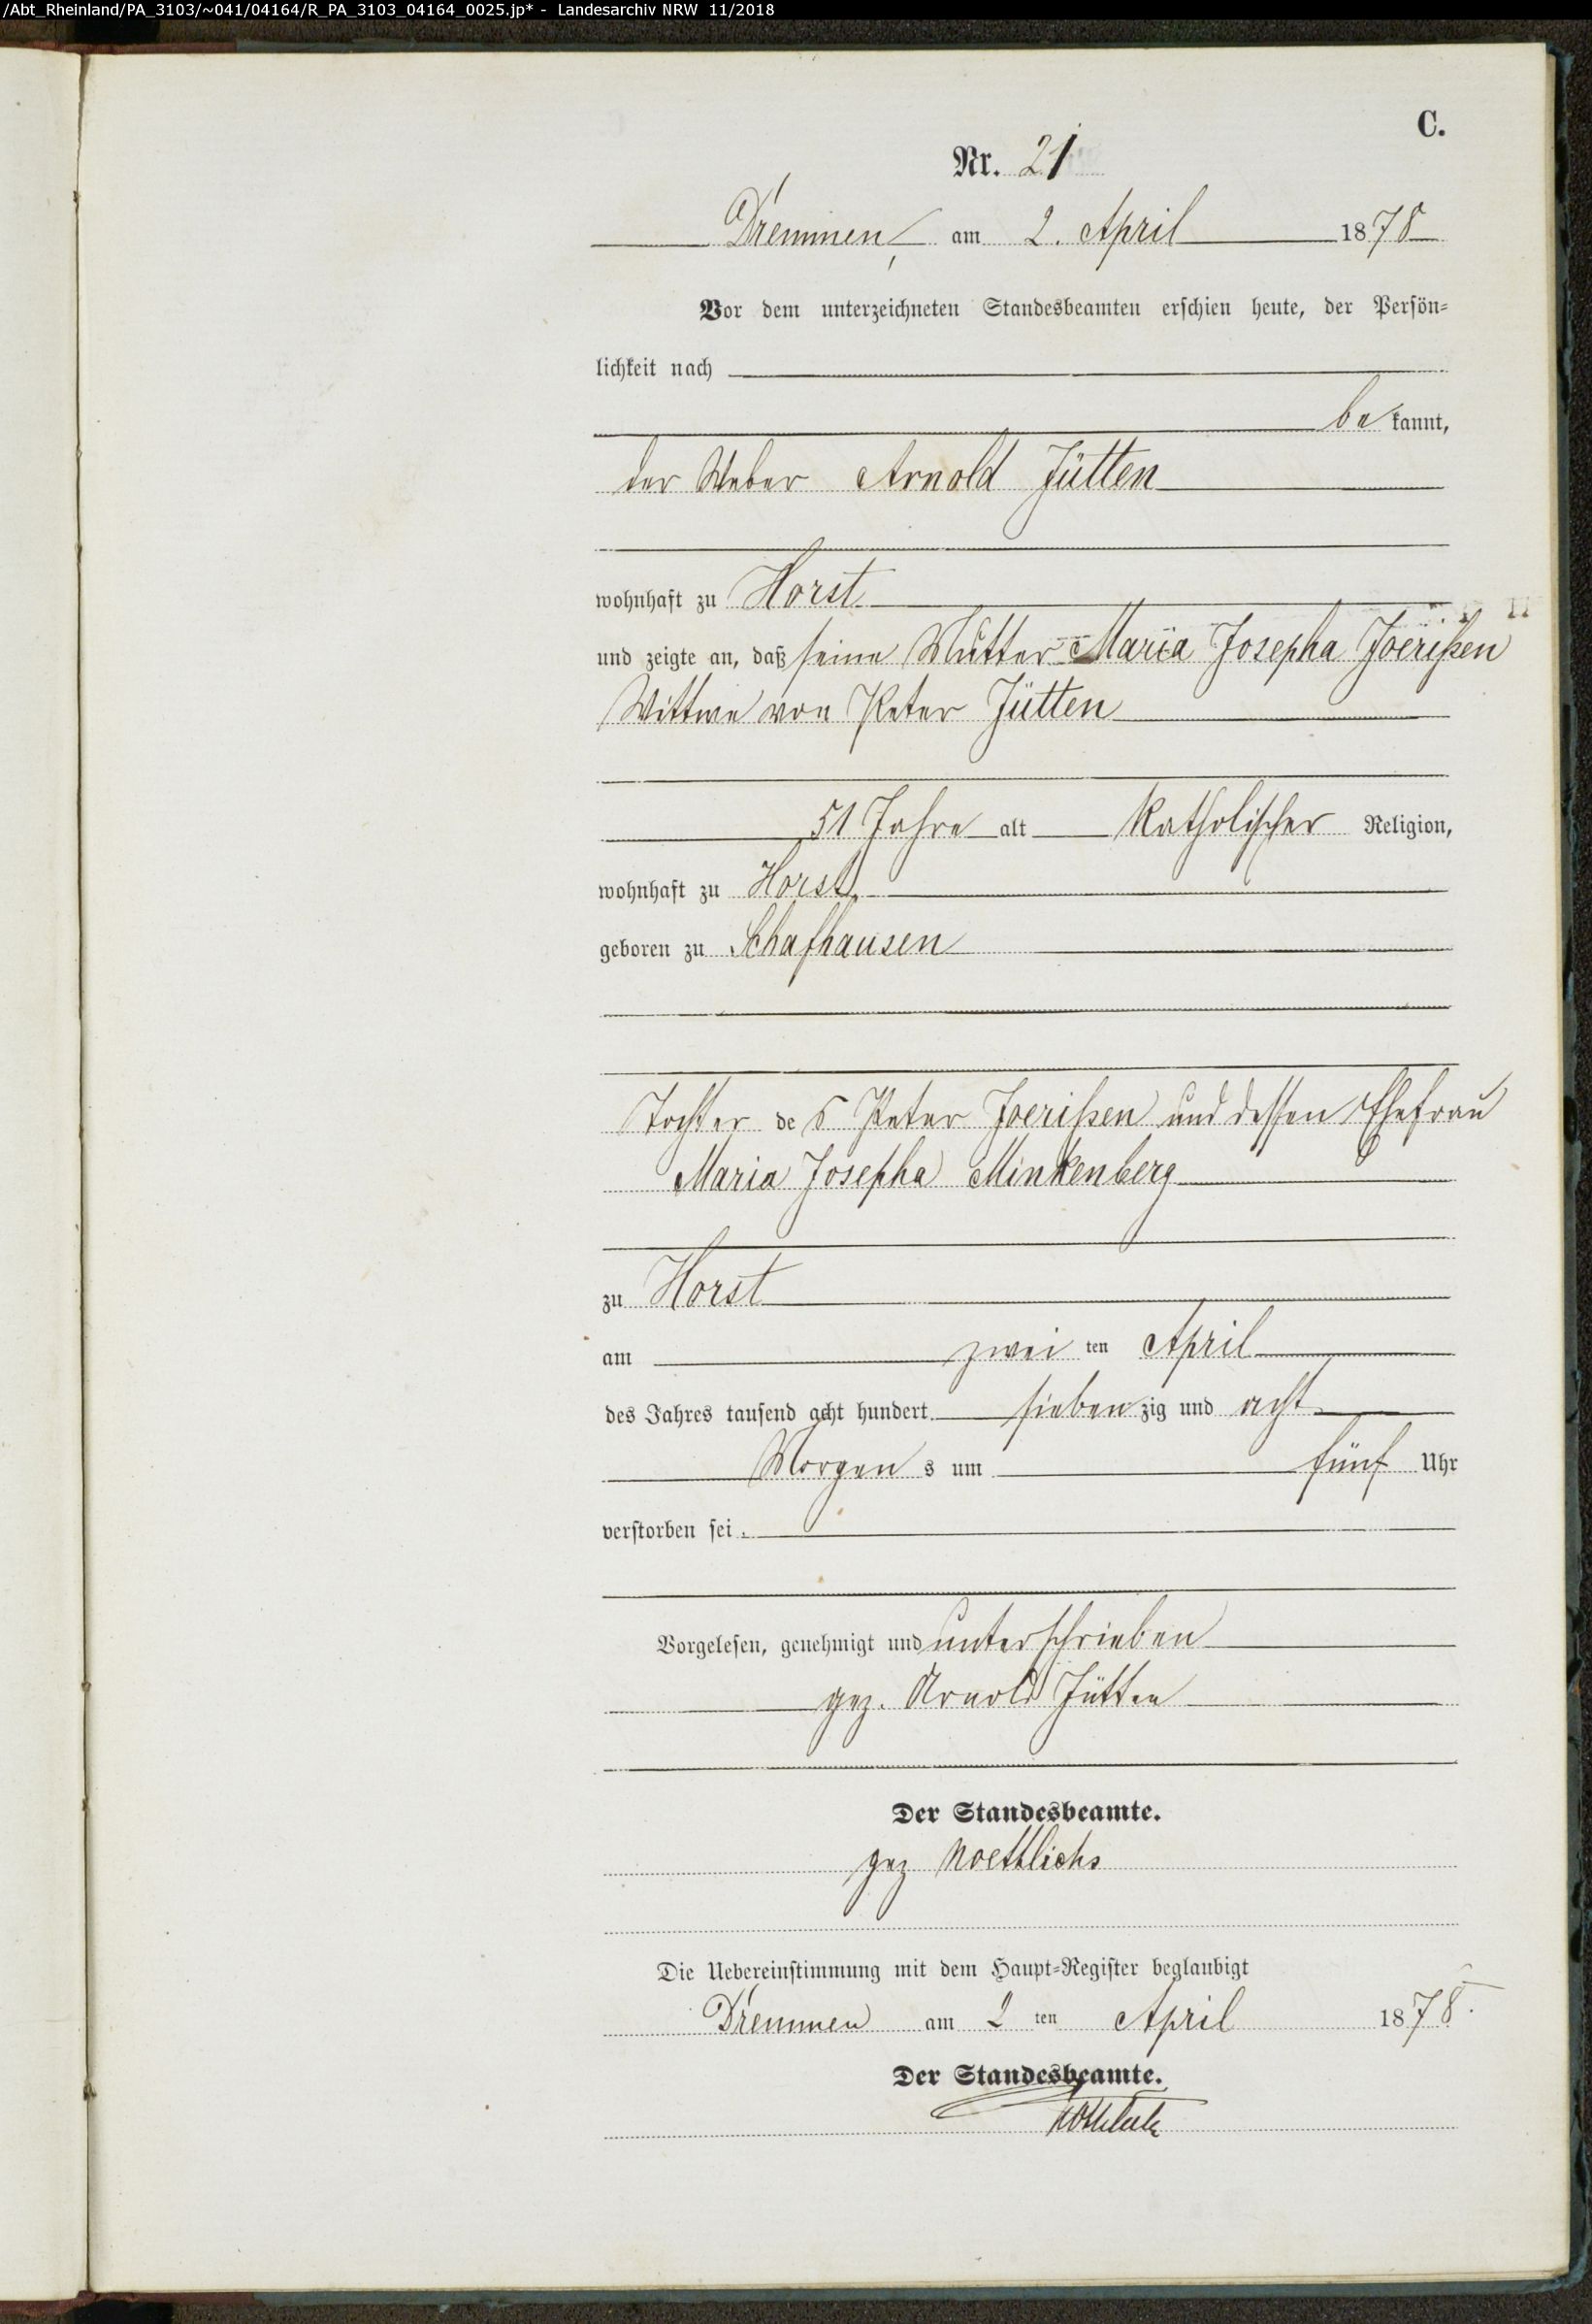 /Abt_Rheinland/PA_3103/~041/04164/R_PA_3103_04164_0025.jp* - Landesarchiv NRW 11/2018
C.
Nr. 21
Dremmen, am 2. April 1878
Vor dem unterzeichneten Standesbeamten erschien heute, der Persön-
lichkeit nach
bekannt,
der Weber Arnold Jütten
wohnhaft zu Horst
und zeigte an, daß seine Mutter Maria Josepha Joerißen
Wittwe von Peter Jütten
51 Jahre alt katholischer Religion,
wohnhaft zu Horst,
geboren zu Schafhausen
Tochter des Peter Joerißen und dessen Ehefrau
Maria Josepha Minkenberg
zu Horst
am zweiten April
des Jahres tausend acht hundert siebenzig und acht
Morgens um fünf Uhr
verstorben sei.
Vorgelesen, genehmigt und unterschrieben
gez. Arnold Jütten
Der Standesbeamte.
gez Noethlichs
Die Uebereinstimmung mit dem Haupt-Register beglaubigt
Dremmen am 2ten April 1878.
Der Standesbeamte.